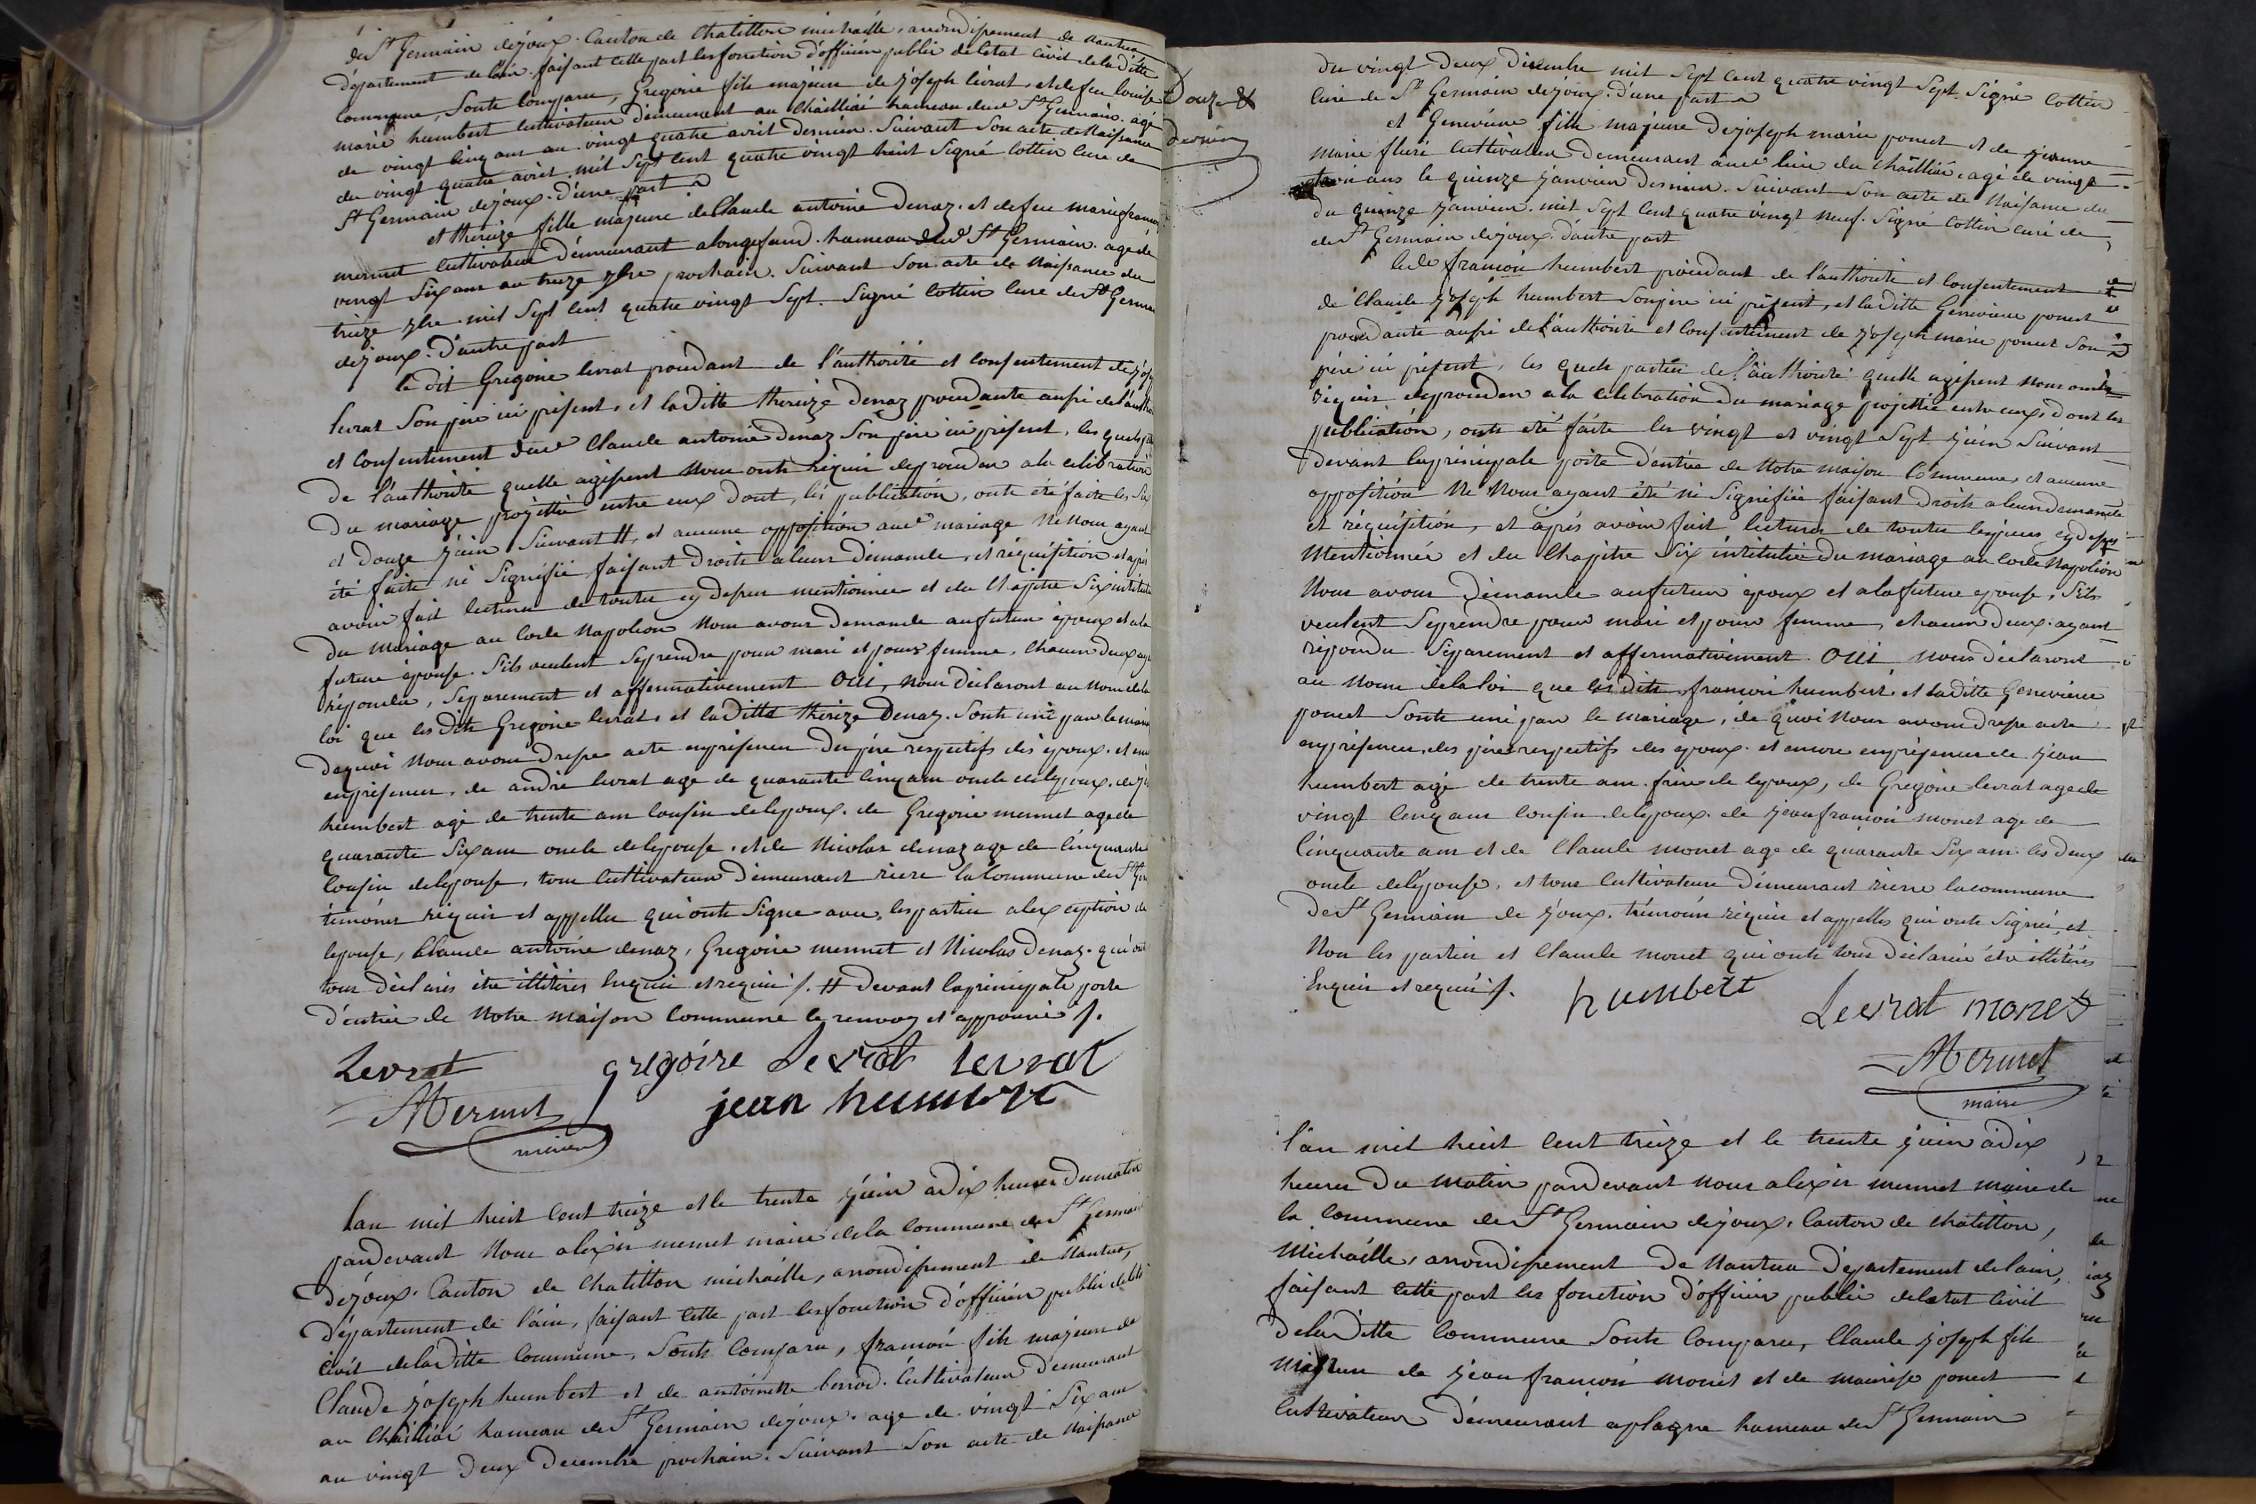 de St Germain dejoux. Canton de Chatillon michaille, arrondisement de Nantua
département de lain faisant cette part les fonction d'officier public de letat civil de la ditte
commune, Sonts Comparu, Gregoire fils majeur de joseph levrat, et de feu louise
marie humbert cultivateur démeurant au Chailliai hameau du St Germain. agé
de vingt cinq ans au vingt quatre avril dernier. Suivant Son acte de Naissance
du vingt quatre avril mil Sept cent quatre vingt huit Signé Cottin Curé de
St Germain dejoux. d'une part
et thereize fille majeure de Claude antoine Denaz. et de feu marie
mermet cultivateur démeurant a longefand. hameau dud St Germain. agé de
vingt Six ans au treize 7bre prochain. Suivant Son acte de Naissance du
treize 7bre mil Sept cent quatre vingt Sept. Signé Cottin Curé de St Germa
dejoux. d'autre part
le dit Gregoire levrat proudant de l'authorité et consentement de jos
levrat Son père ici présent, et la ditte thereize Denaz proudante aussi de l'auth
et Consentement dud Claude antoine Denaz Son père ici présent, les quels p
De l'authorité quelle agissent Nous onts réquir deproceder a la célébration
Du mariage projettée entre eux dont, les publication, onts été faite les Six
et Douze juin Suivant H, et aucune opposition aud mariage Ne Nous ayant
été faite ni Signifiée faisant Droits a leurs démande, et réquisition et après
avoir fait lecture de toutes cy dessus mentionnée et du Chapitre Six intitulé
Du Mariage au Code Napoleon Nous avons Demandé au futeur époux et a la
future épouse. Sils veulent Seprendre pour mari et pour femme, chacun deux aya
répondu, Separement et affermativement Oui, Nous déclaront au Nom de la
loi que les dits Gregoire levrat, et la Ditte thereize Denaz. Sonts unis par le maria
Dequoi Nous avons Dressé acte enprésence Des père respectifs des époux. et enc
enprésence, de andré levrat agé de quarante Cinq ans oncle de lépoux. de je
humbert agé de trente ans Cousin delépoux. de Gregoire mermet agé de
quarante Six ans oncle delépouse. et de Nicolas denaz agé de Cinquante
Cousin delépouse, tous Cultivateurs Démeurant riere la Commune de St Ger
témoins réquir et appellés qui onts Signé avec, les parties a lexception de
lepouse, Claude antoine denaz, Gregoire mermet et Nicolas Denaz. qui ont
tous déclarés être illitérés Enquir et réquir /. H Devant la principale porte
d'entrée de Notre maison Commune le renvoy et approuvé /.
Levrat gregoire Levrat levrat
Mermet jean humbert
maire
Lan mil huit Cent treize et le trente juin a dix heures du matin
pardevant Nous alexis mermet maire de la Commune de St Germain
dejoux. Canton de Chatillon michaille, arrondisement de Nantua,
Département de l'ain, faisant cette part les fonction d'officier public de leta
civil de la ditte Commune, Sonts Comparu, francois fils majeur de
Claude joseph humbert et de antoinette berrod. Cultivateur Démeurant
au Chailliai hameau de St Germain dejoux. agé de vingt Six ans
au vingt Deux Decembre prochain. Suivant Son acte de Naissance
Douze &
dernier
du vingt Deux Décembre mil Sept cent quatre vingt Sept Signé Cottin
Curé de St Germain dejoux. d'une part
et Genevieve fille majeure de joseph marie poncet et de jeanne
marie fluri Cultivateur Demeurant aud lieu du Chaillié, agé de vingt
ans le quinze janvier Dernier. Suivant Son acte de Naissance du
du quinze janvier. mil Sept Cent quatre vingt Neuf. Signé Cottin Curé de
de St Germain dejoux. d'autre part
ledt francois humbert proudant de l'authorité et Consentement
de Claude joseph humbert Sonpère ici présent, et la ditte Genevieve poncet
proudante aussi de l'authorité et Consentement de joseph marie poncet Son
père ici présent, les quels parties de l'authorité quelle agissent Nous onts
réquir deproceder a la célébration du mariage projettée entre eux, dont les
publication, onts été faite les vingt et vingt Sept juin Suivant
devant la principale porte d'entrée de Notre maison Commune, et aucune
opposition Ne Nous ayant été ni Signifiée faisant Droits a leurs demande
et réquisition, et après avoir fait lecture de toutes les pieces cy dessus
Mentionnée et du Chapitre Six intitulée Du mariage au Code Napoléon
Nous avons Démandé au futeur époux et a la future épouse, Sils
veulent Seprendre pour mari et pour femme, chacun deux ayant
répondu Séparement et affermativement. Oui Nous déclaront
au Nom de la loi que les dits francois humbert et la ditte Genevieve
poncet Sonts uni par le mariage, de quoi Nous avons dressé acte
enprésence, des pères respectifs des époux. et encore enprésence de jean
humbert agé de trente ans frère de lepoux, de Gregoire levrat agé de
vingt Cinq ans Cousin delépoux. de jean francois monet agé de
Cinquante ans et de Claude monet agé de quarante Six ans. les deux
oncle delépouse, et tous Cultivateurs Démeurant riere la commune
De St Germain de joux. témoins réquir et appellés qui onts Signés, et
Non les parties et Claude monet qui onts tous déclarée être illitérés
Enquir et requir /.
humbert
Levrat monet
Mermet
maire
l'an mil huit Cent treize et le trente juin a dix
heures Du matin pardevant nous alexis mermet maire de
la Commune de St Germain dejoux, Canton de Chatillon,
Michaille, arrondisement De Nantua Département de lain,
faisant cette part les fonction d'officier public de letat Civil
De la Ditte Commune Sonts Comparu, Claude joseph fils
Majeur de jean francois monet et de maurise poncet
Cultivateur Démeurant a plagne hameau de St Germain